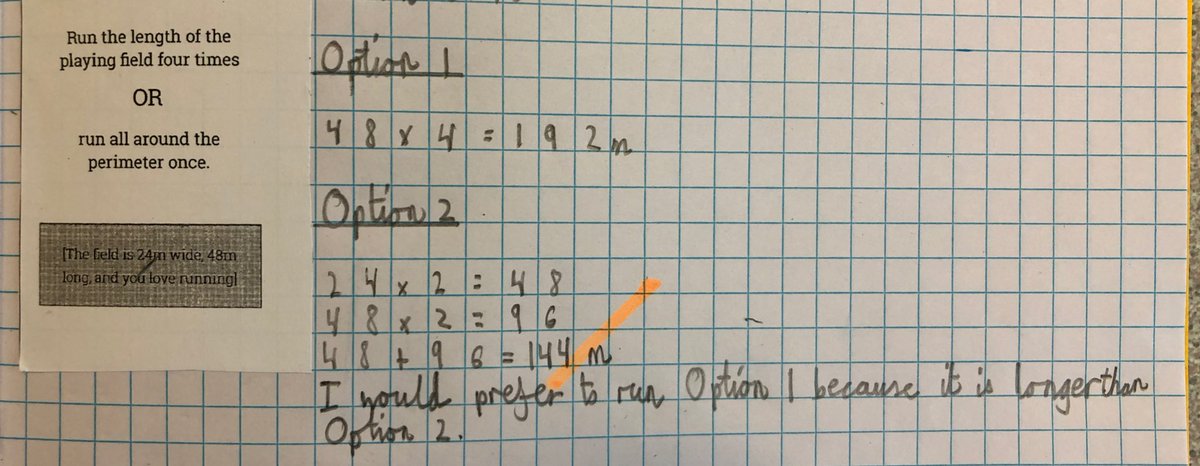 Run the length of the
playing field four times
OR
run all around the
perimeter once.
[The field is 24m wide, 48m
long, and you love running]
Option 1
48 x 4 = 192m
Option 2
24 x 2 = 48
48 x 2 = 96
48 + 96 = 144 m
I would prefer to run Option 1 because it is longer than
Option 2.